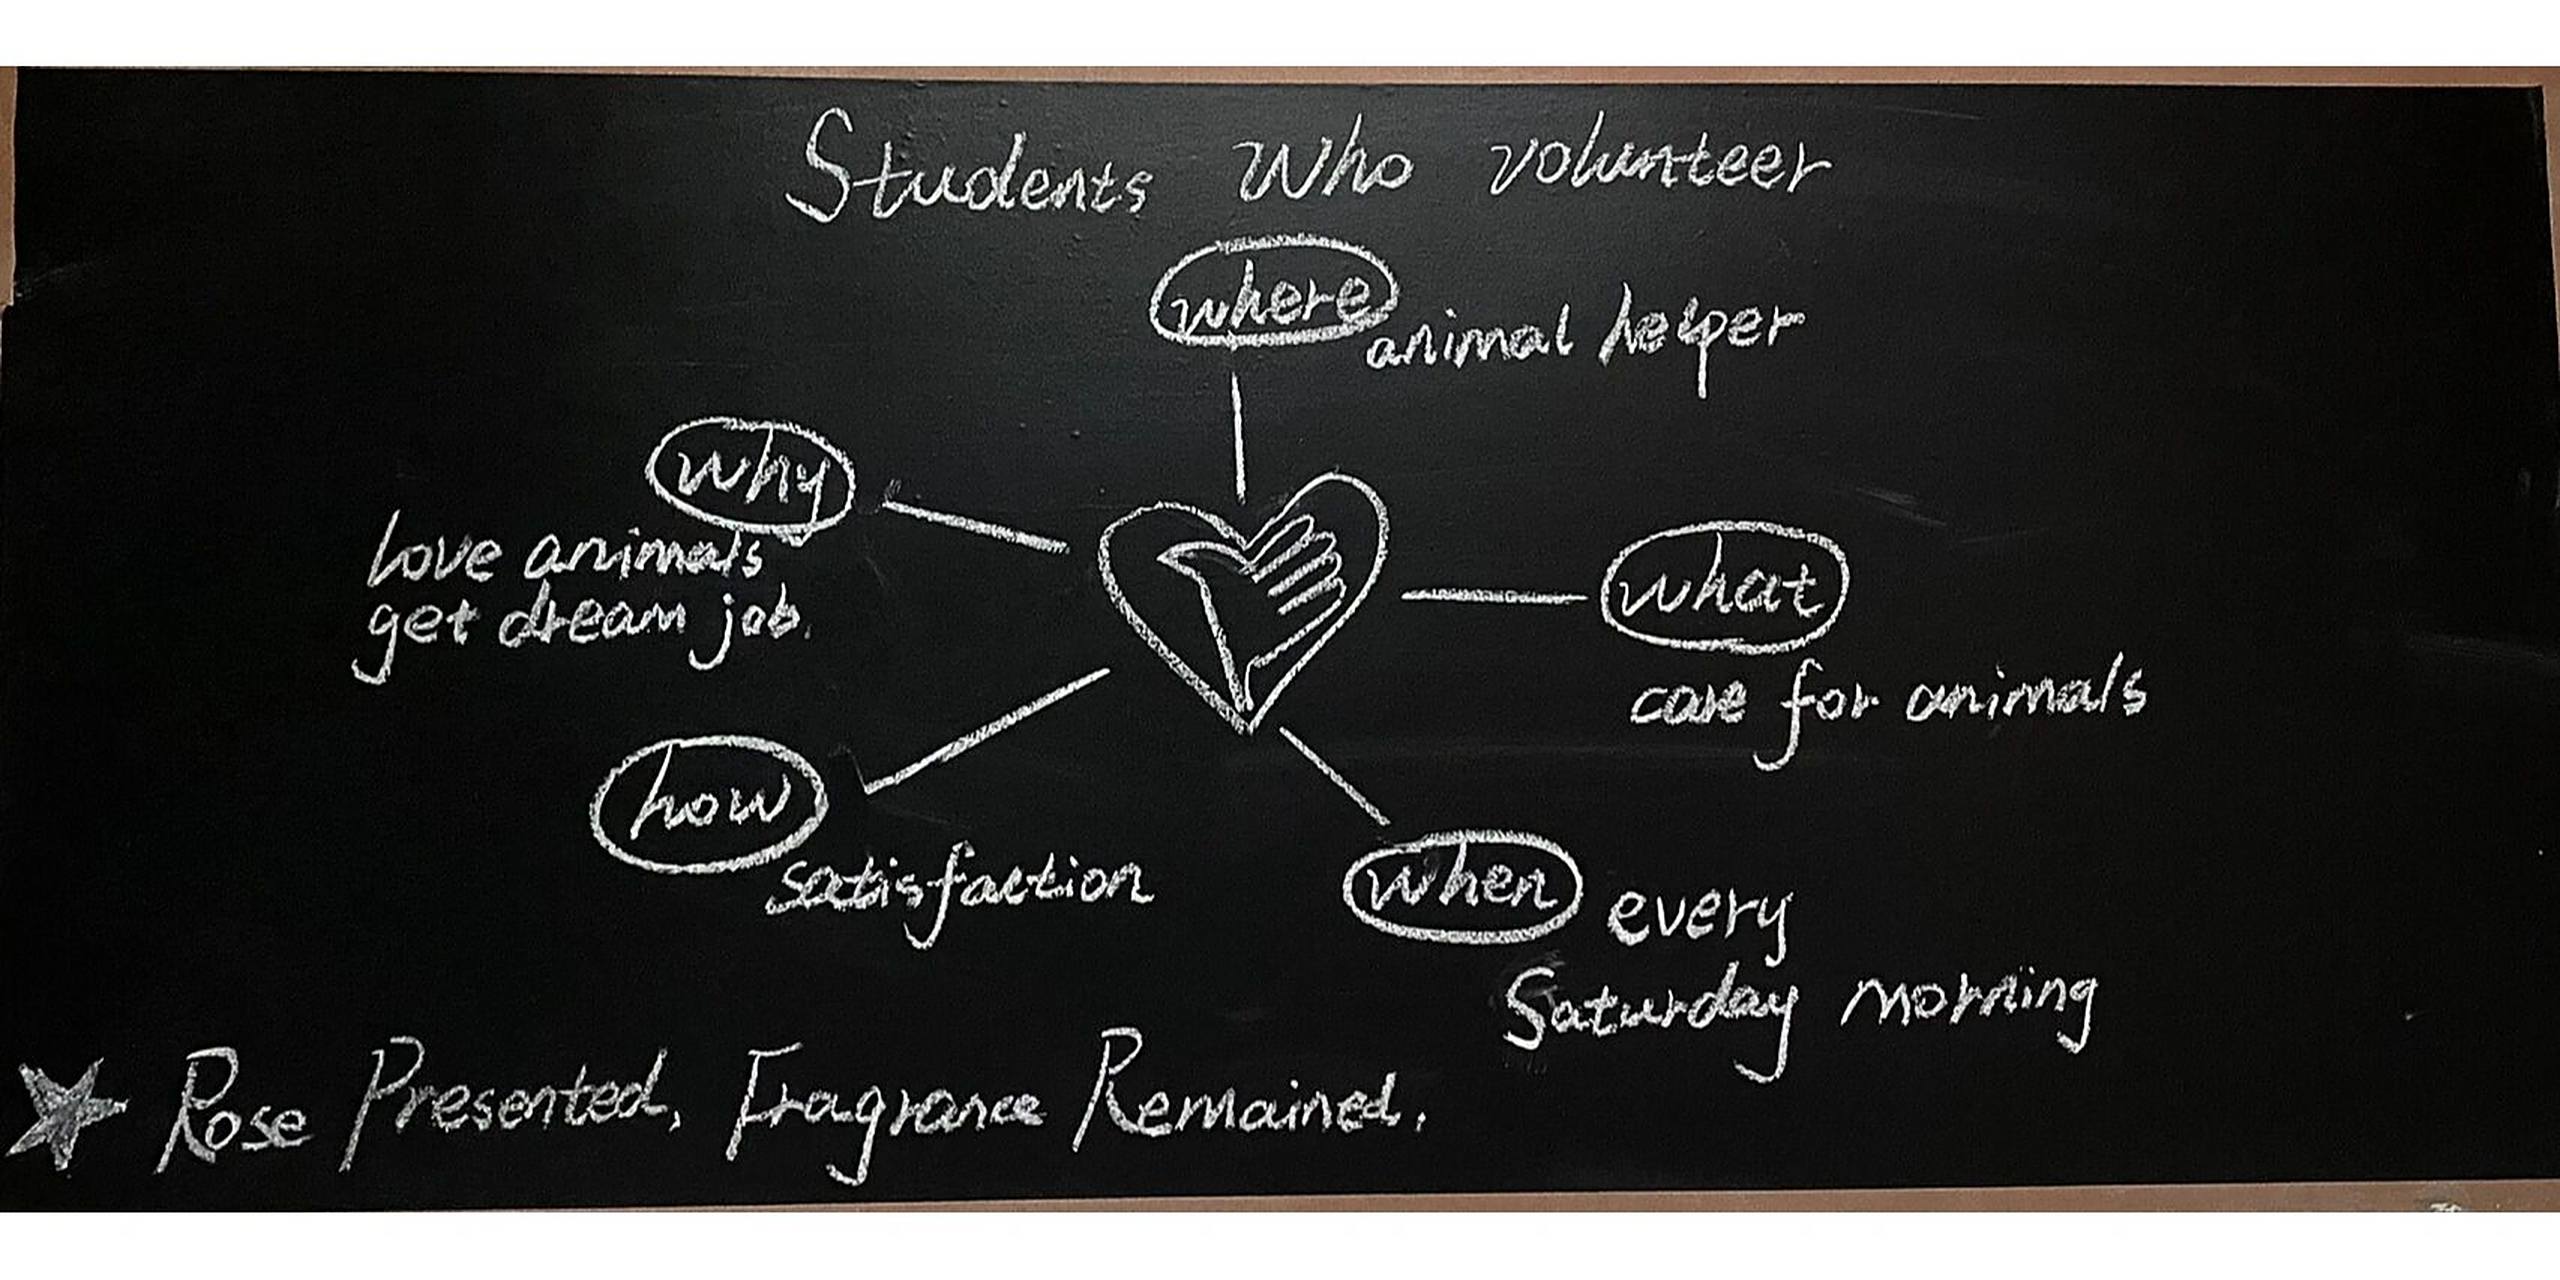 Students Who volunteer
where
animal helper
why
love animals
get dream job.
what
care for animals
how
satisfaction
when every
Saturday morning
Rose Presented, Fragrance Remained.